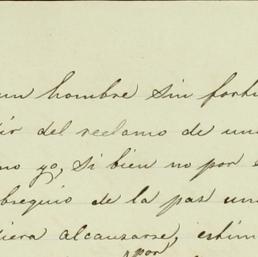 un hombre sin fortu
ir del reclamo de un
mo yo, si bien no por
bsequio de la paz un
iera alcanzarse, estim
por